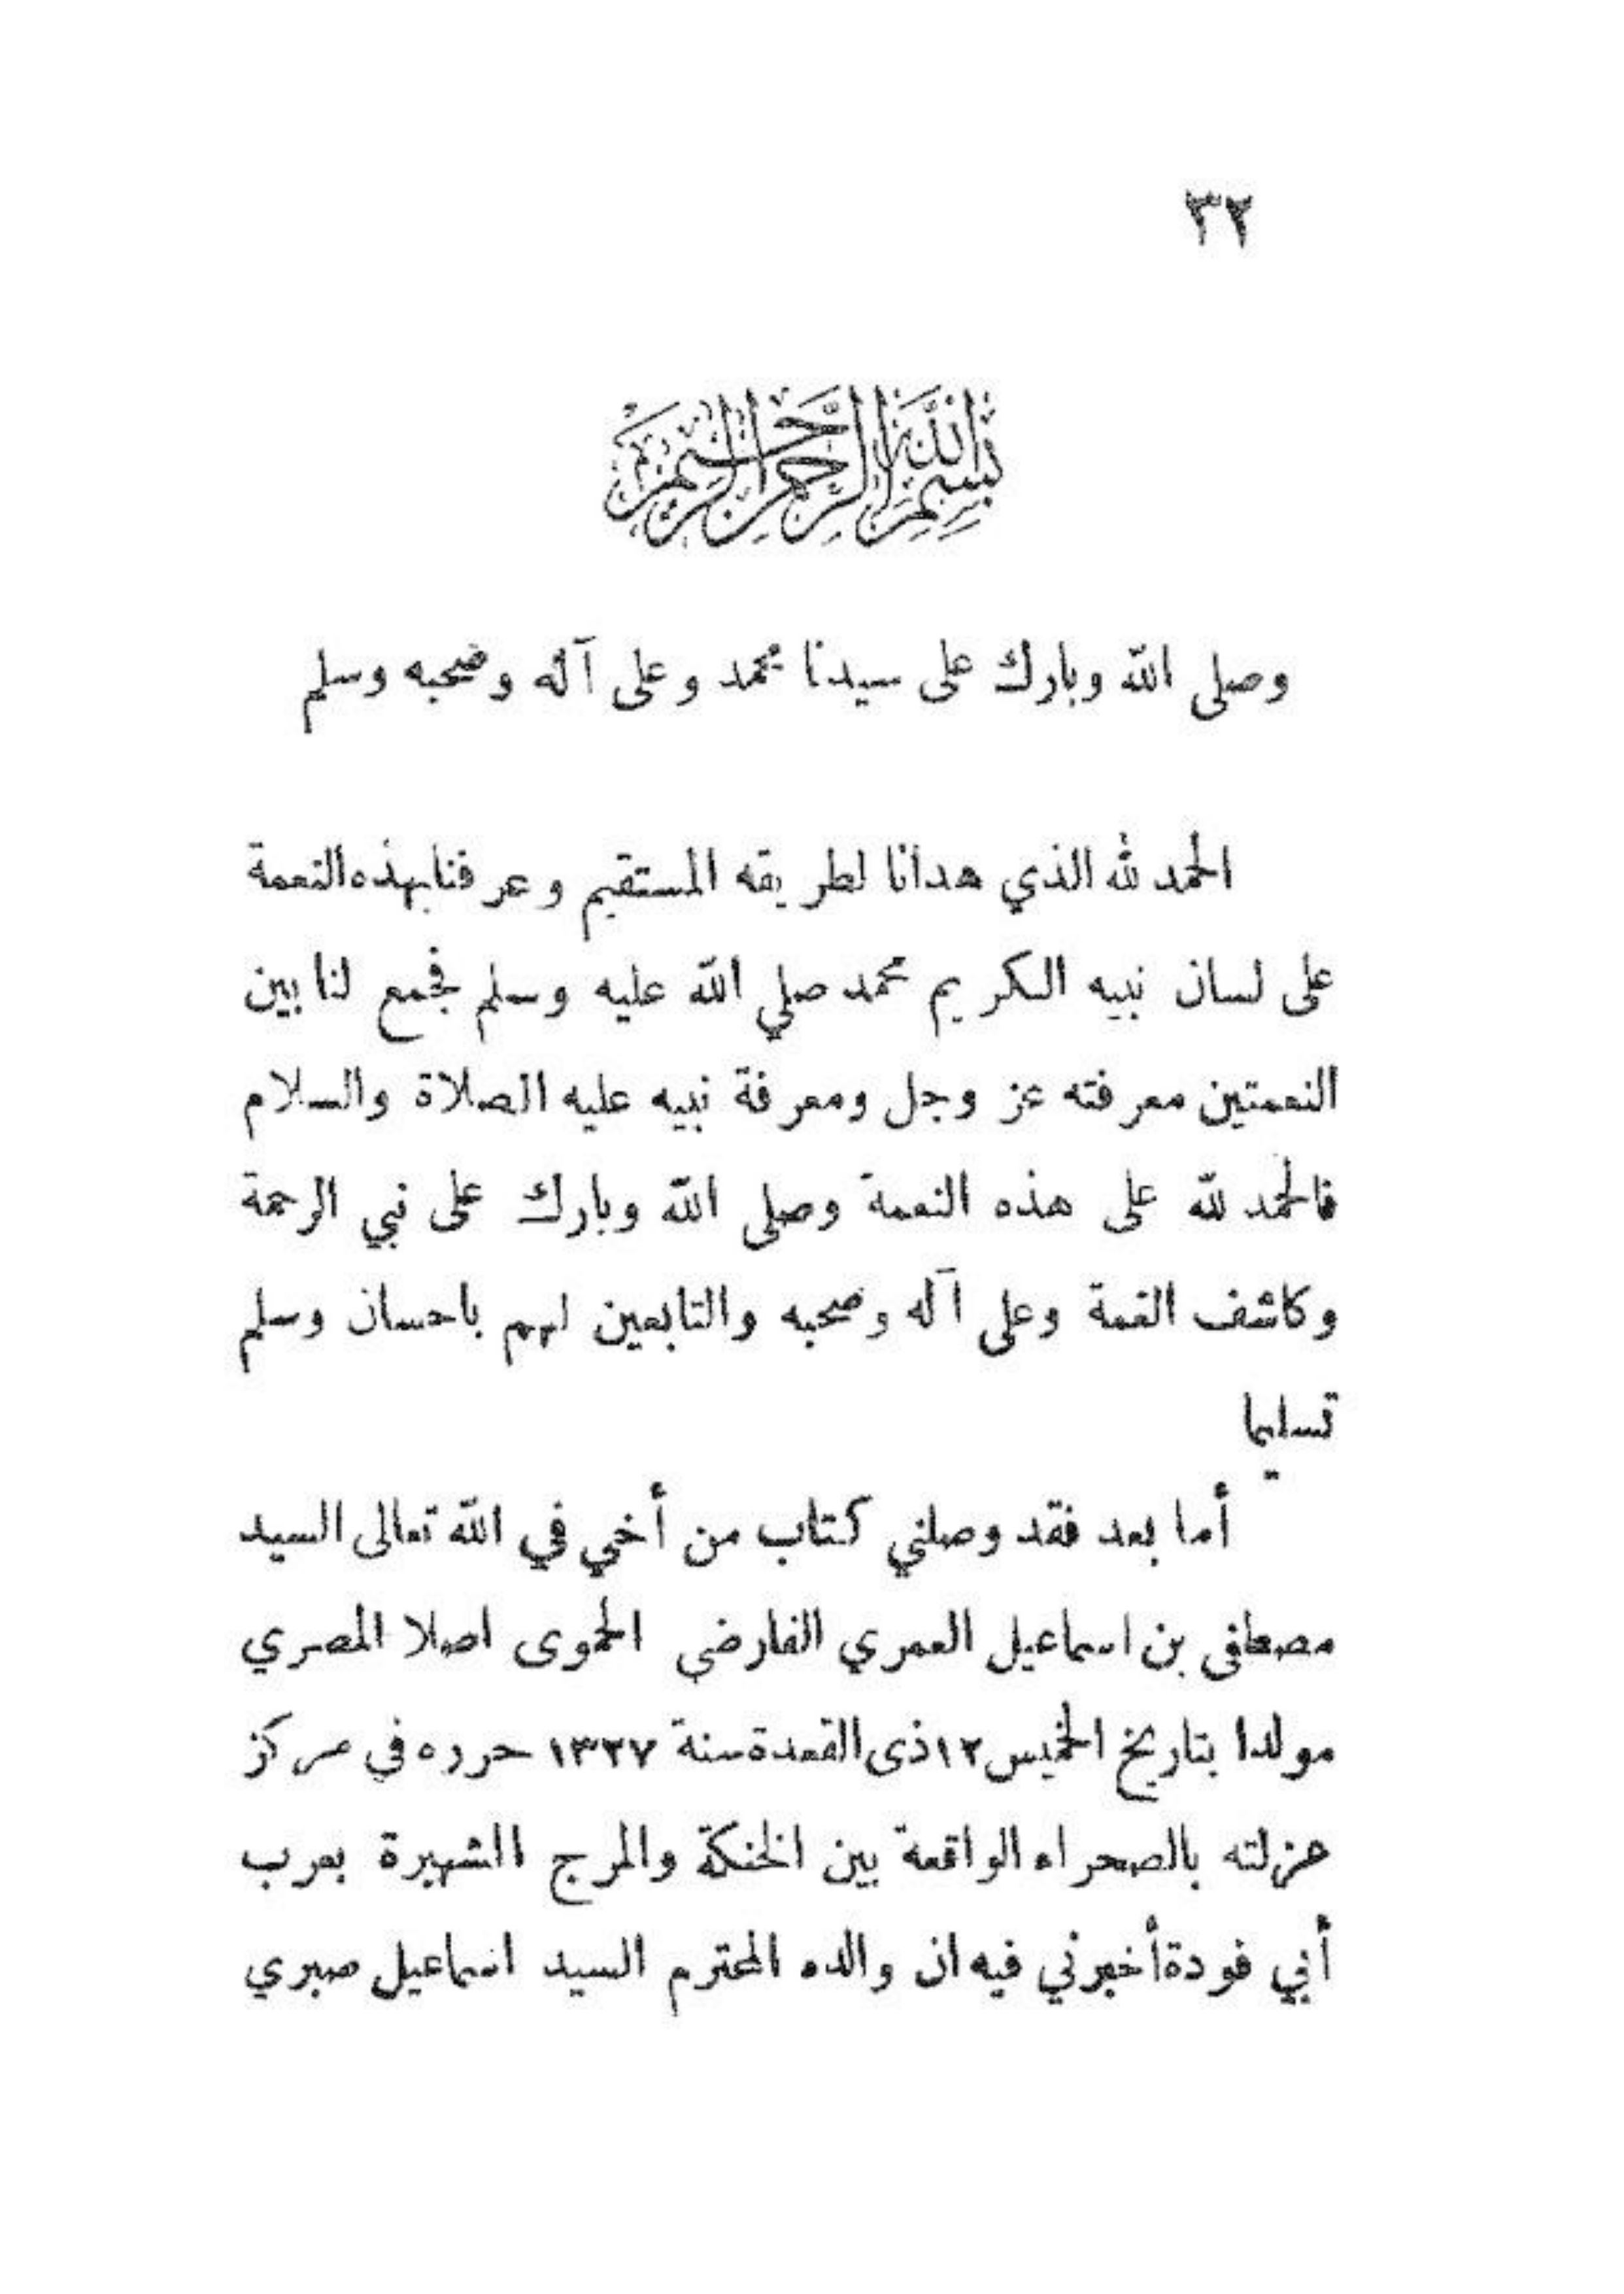 ٣٢
بسم الله الرحمن الرحيم
وصلى الله وبارك على سيدنا محمد وعلى آله وصحبه وسلم
الحمد لله الذي هدانا لطريقه المستقيم وعرفنا بهذه النعمة
على لسان نبيه الكريم محمد صلي الله عليه وسلم فجمع لنا بين
النعمتين معرفته عز وجل ومعرفة نبيه عليه الصلاة والسلام
فالحمد لله على هذه النعمة وصلى الله وبارك على نبي الرحمة
وكاشف الغمة وعلى آله وصحبه والتابعين لهم باحسان وسلم
تسليما
أما بعد فقد وصلني كتاب من أخي في الله تعالى السيد
مصطفى بن اسماعيل العمري الفارضى الحموى اصلا المصري
مولدا بتاريخ الخميس ١٢ ذى القعدة سنة ١٣٢٧ حرره في مركز
عزلته بالصحراء الواقعة بين الخنكة والمرج الشهيرة بعرب
أبي فودة أخبرني فيه ان والده المحترم السيد اسماعيل صبري